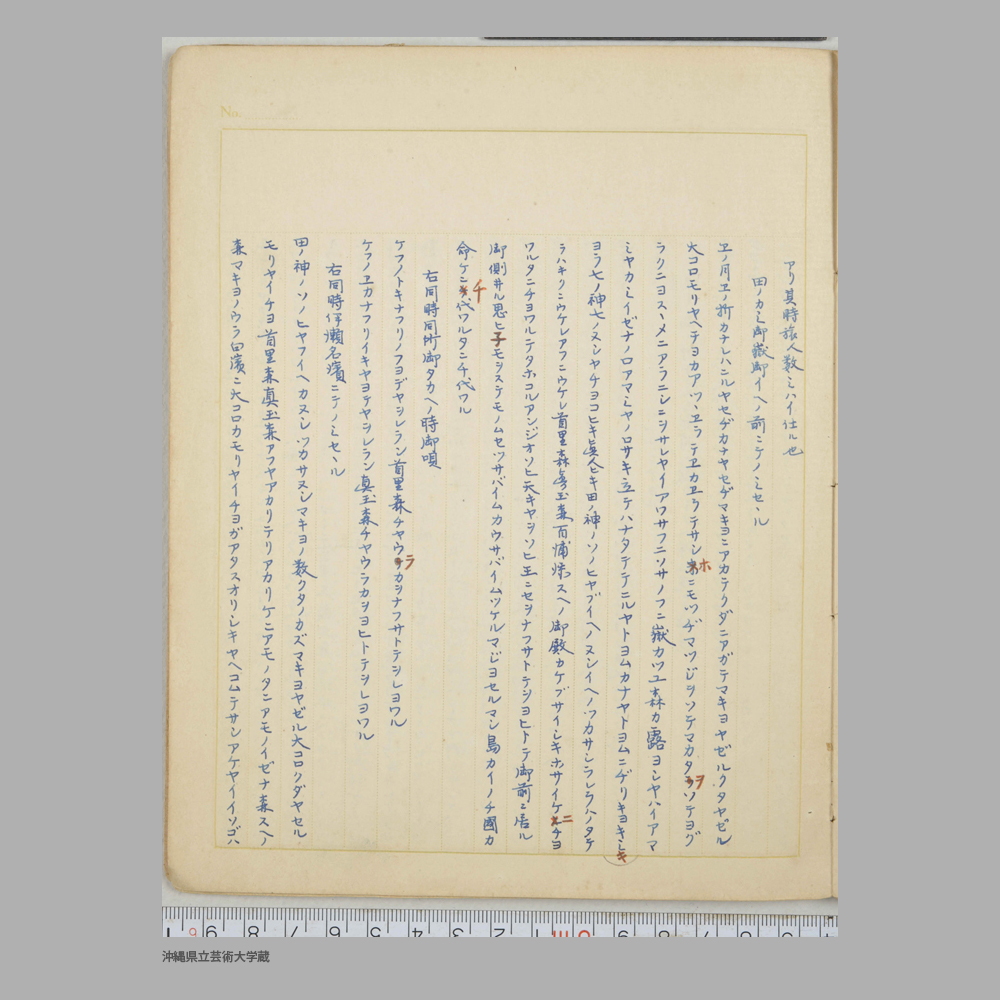 アリ其時旅人数ミハイ仕ル也
田ノカミ御嶽御イヘノ前ニテノミセヽル
ヱノ月ヱノ折カチレハニルヤセヂカナヤセヂマキヨニアカテクダニアガテマキヨヤゼルクタヤゼル
大コロモリヤヘテヨカアツヽヱラテヱカヱラテサシホニモツヂマツジヲソテマカタヲソテヨグ
ラクニヨスヽメニアフニシニシサレヤイアワサフニソサノフニ嶽カツユ森カ露ヨシヤハイアマ
ミヤカミイゼナノロアマミヤノロサキ立テハナタテテニルヤトヨムカナヤトヨムニヂリキヨキ
ヨラ七ノ神七ノヌシヤチヨコヒキ真人ヒキ田ノ神ノソノヒヤブイヘノヌシイヘノツカサシラレラハノタテ
ラハキクニウケレアフニウケレ首里森真玉森百浦添スヘノ御殿カケブサイシキホサイケニチヨ
ワルタニチヨワルテタホコルアンジオソヒ天キヤシソヒ王ニセシナフサトテシヨヒトテ御前ニ居ル
御側井ル思ヒ子モシステモノムセツサバイムカウサバイムツケルマジヨセルマシ島カイノチ國カ
命ケニチ代ワルタニチ代ワル
右同時同所御タカヘノ時御唄
ケフノトキナフリノフヨデヤシレラン首里森チヤウラカシナフサトテシレヨワル
ケフノヱカナフリイキヤヨテヤシレラン真玉森チヤウラカシヨヒトテシレヨワル
右同時伊瀬名濱ニテノミセヽル
田ノ神ノソノヒヤフイヘカヌシツカサヌシマキヨノ数クタノカズマキヨヤゼル大コロクダヤセル
モリヤイチヨ首里森真玉森アフヤアカリテリアカリケニアモノタニアモノイゼナ森スヘノ
森マキヨノウラ白濱ニ大コロカモリヤイチヨガアタスオリシキヤヘコムテサンアケヤイイソゴハ
沖縄県立芸術大学蔵